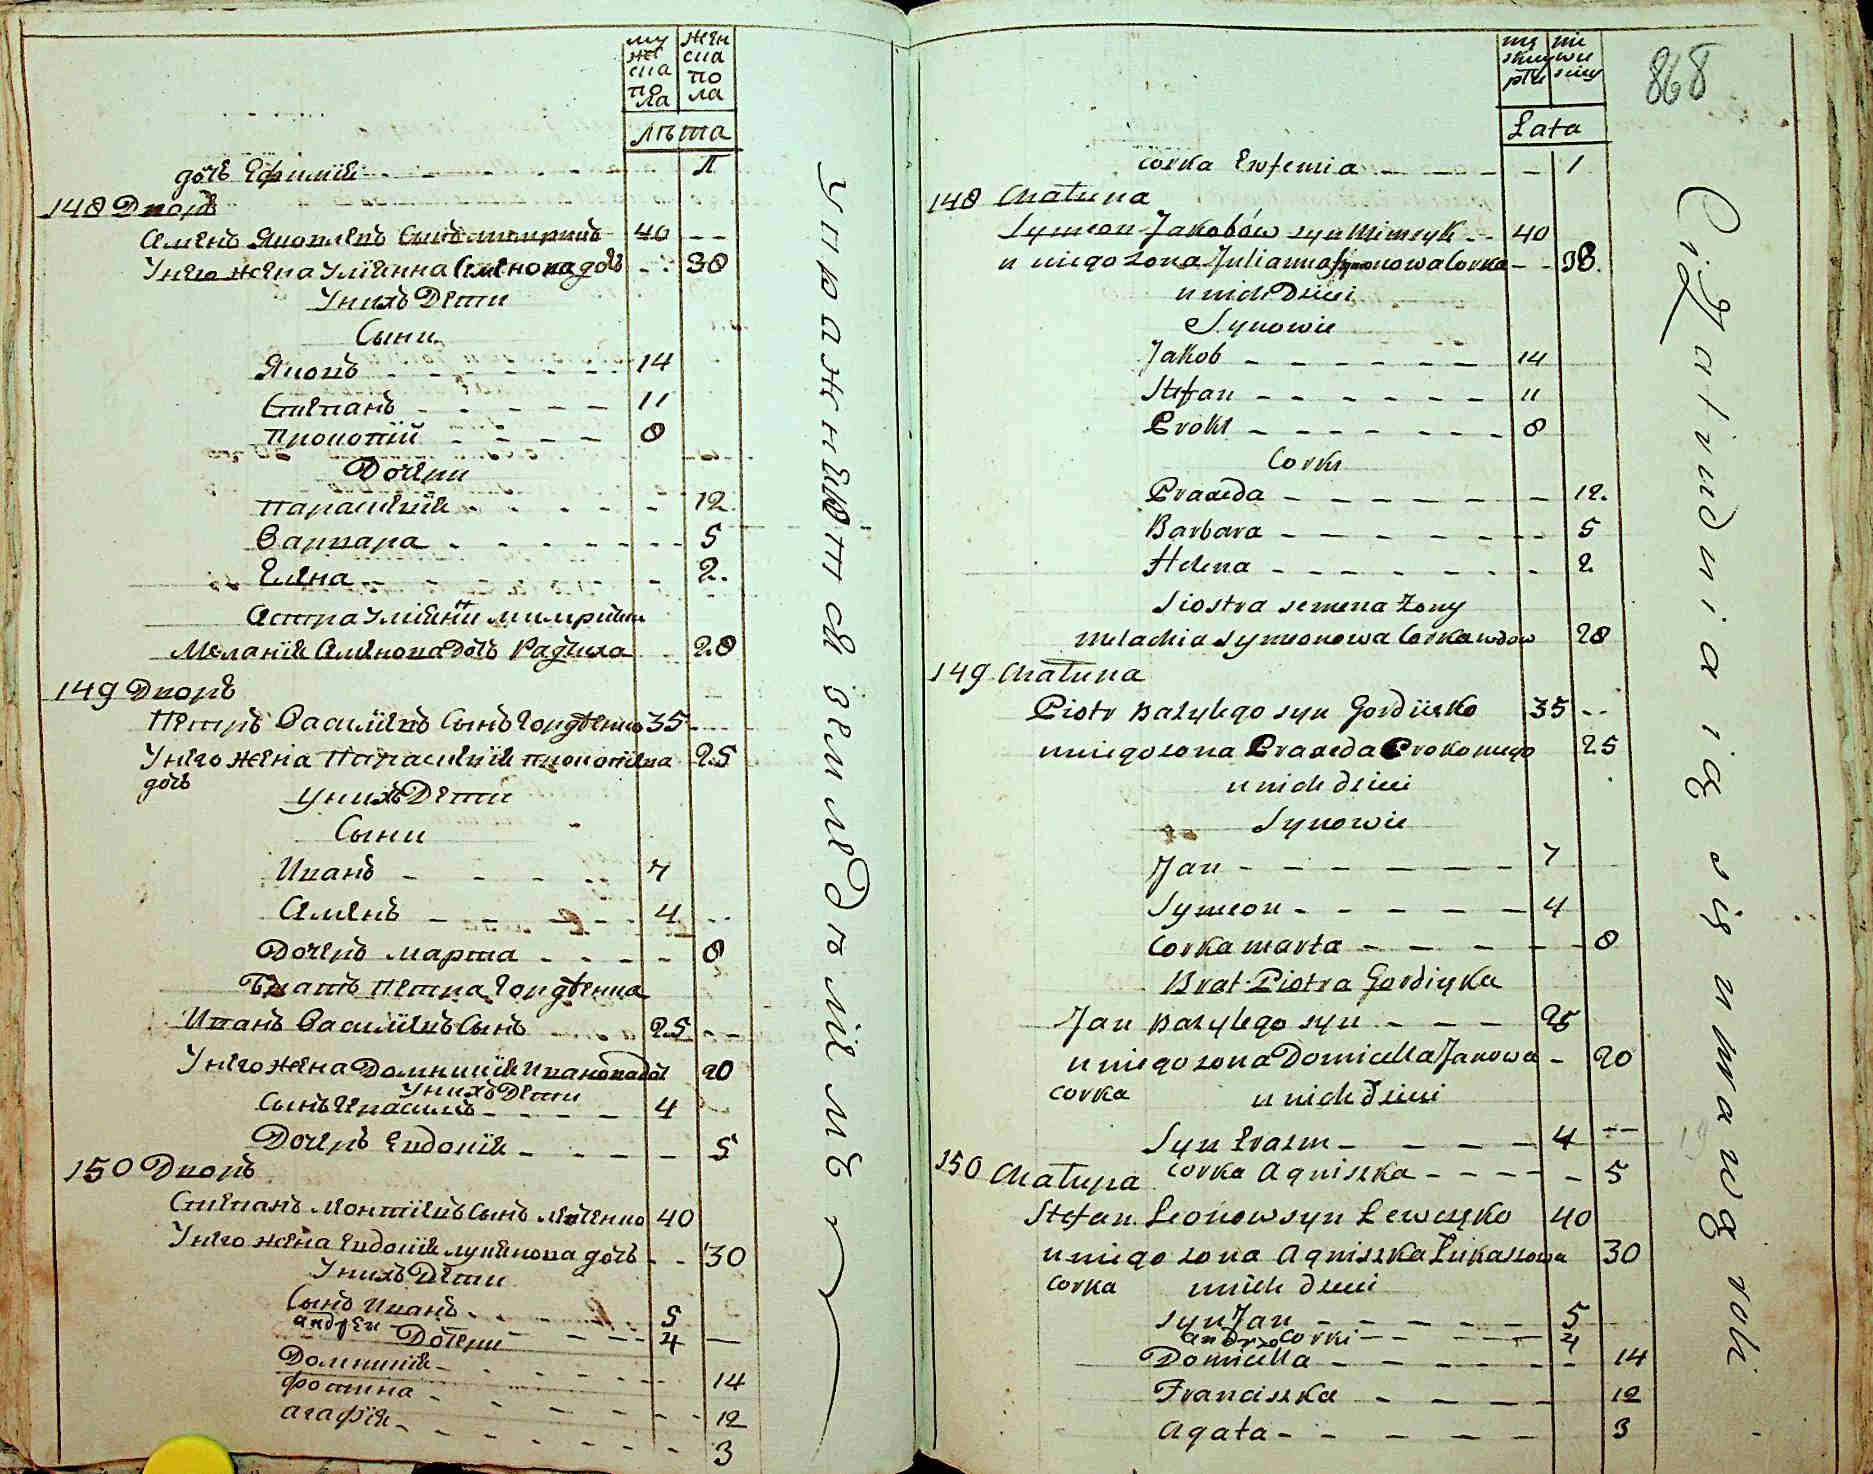 му
жес
ска
по
ла
жен
ска
по
ла
лѣта
дочь Ефимія 1
148 Дворъ
Семенъ Яковлевъ Сынъ 40
У него жена Уліянна Семенова дочь 38
У нихъ Дети
Сыни
Яковъ 14
Степанъ 11
Прокопій 8
Дочери
Параскевія 12
Варвара 5
Елена 2.
Сестра Уліянни
Меланія Семенова дочь 28
149 Дворъ
Петръ Василіевъ Сынъ Гордѣенко 35
У него жена Параскевія Прокопіева 25
дочь
У нихъ Дети
Сыни
Иванъ 7
Семенъ 4
Дочерь Марта 8
Братъ Петра Гордѣенка
Иванъ Василіевъ Сынъ 25
У него жена Домникія Иванова дочь 20
У нихъ Дети
Сынъ Герасимъ 4
Дочерь Евдокія 5
150 Дворъ
Степанъ Леонтіевъ Сынъ 40
У него жена Евдокія Лукянова дочь 30
У нихъ Дети
Сынъ Иванъ 5
Андрей 4
Дочери
Домникія 14
Фотина 12
Агафія 3
упражняются земледѣліемъ
868
Lata
corka Eufemia 1
148 Chałupa
Symeon Jakobów syn 40
u niego zona Julianna Symonowa Corka 38.
u nich Dzieci
Synowie
Jakob 14
Stefan 11
Prokt 8
Corki
Praxeda 12.
Barbara 5
Helena 2
Siostra Semena żony
Melachia Symeonowa Corka wdow 28
149 Chałupa
Piotr Bazylego syn Gordiieko 35
u niego zona Praxeda Prokowego 25
u nich dzieci
Synowie
Jan 7
Symeon 4
Corka Marta 8
Brat Piotra Gordiyka
Jan Bazylego syn 25
u niego zona Domicella Janowa 20
corka u nich Dzieci
Syn Erazm 4
150 Chałupa corka Agniszka 5
Stefan Leonow syn Lewczęko 40
u niego zona Agniszka Łukaszowa 30
corka u nich dzieci
syn Jan 5
andrzo corki 4
Domicella 14
Franciszka 12
Agata 3
Ci Zatrudniaią się uprawą roli